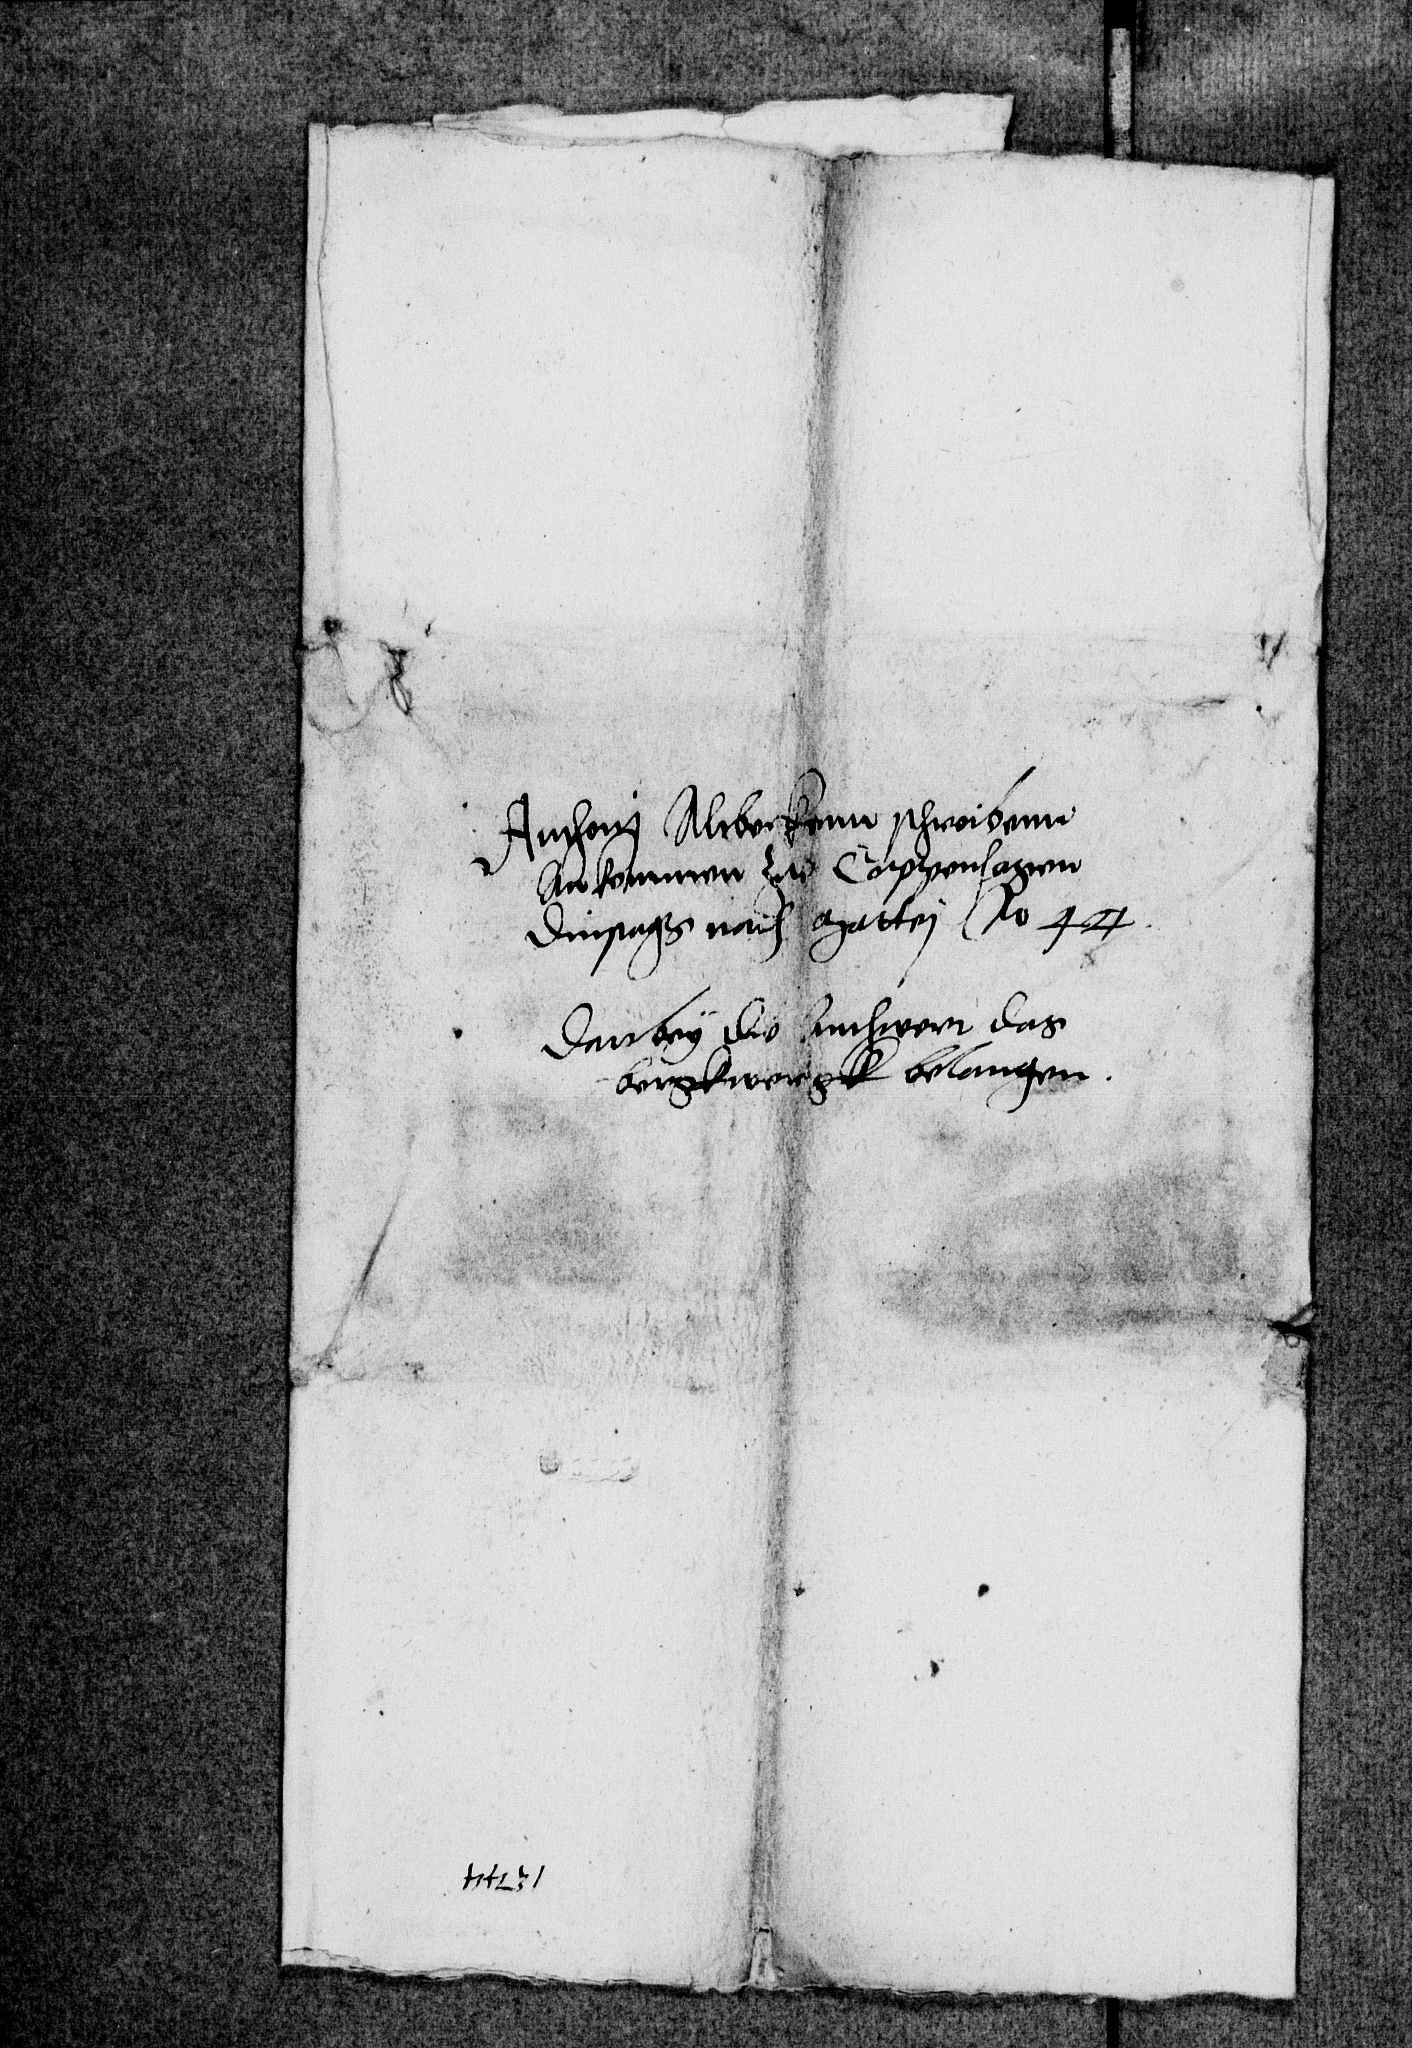 Anthonj Alrberkenn schreibenn
Ankommen zu Coppenhagen
Dinstags nach Mattej Ao 44
Darbey die Anthwort das
bergkwergk belangen.
1544